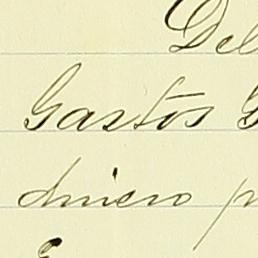 Del
Gastos G
dinero p